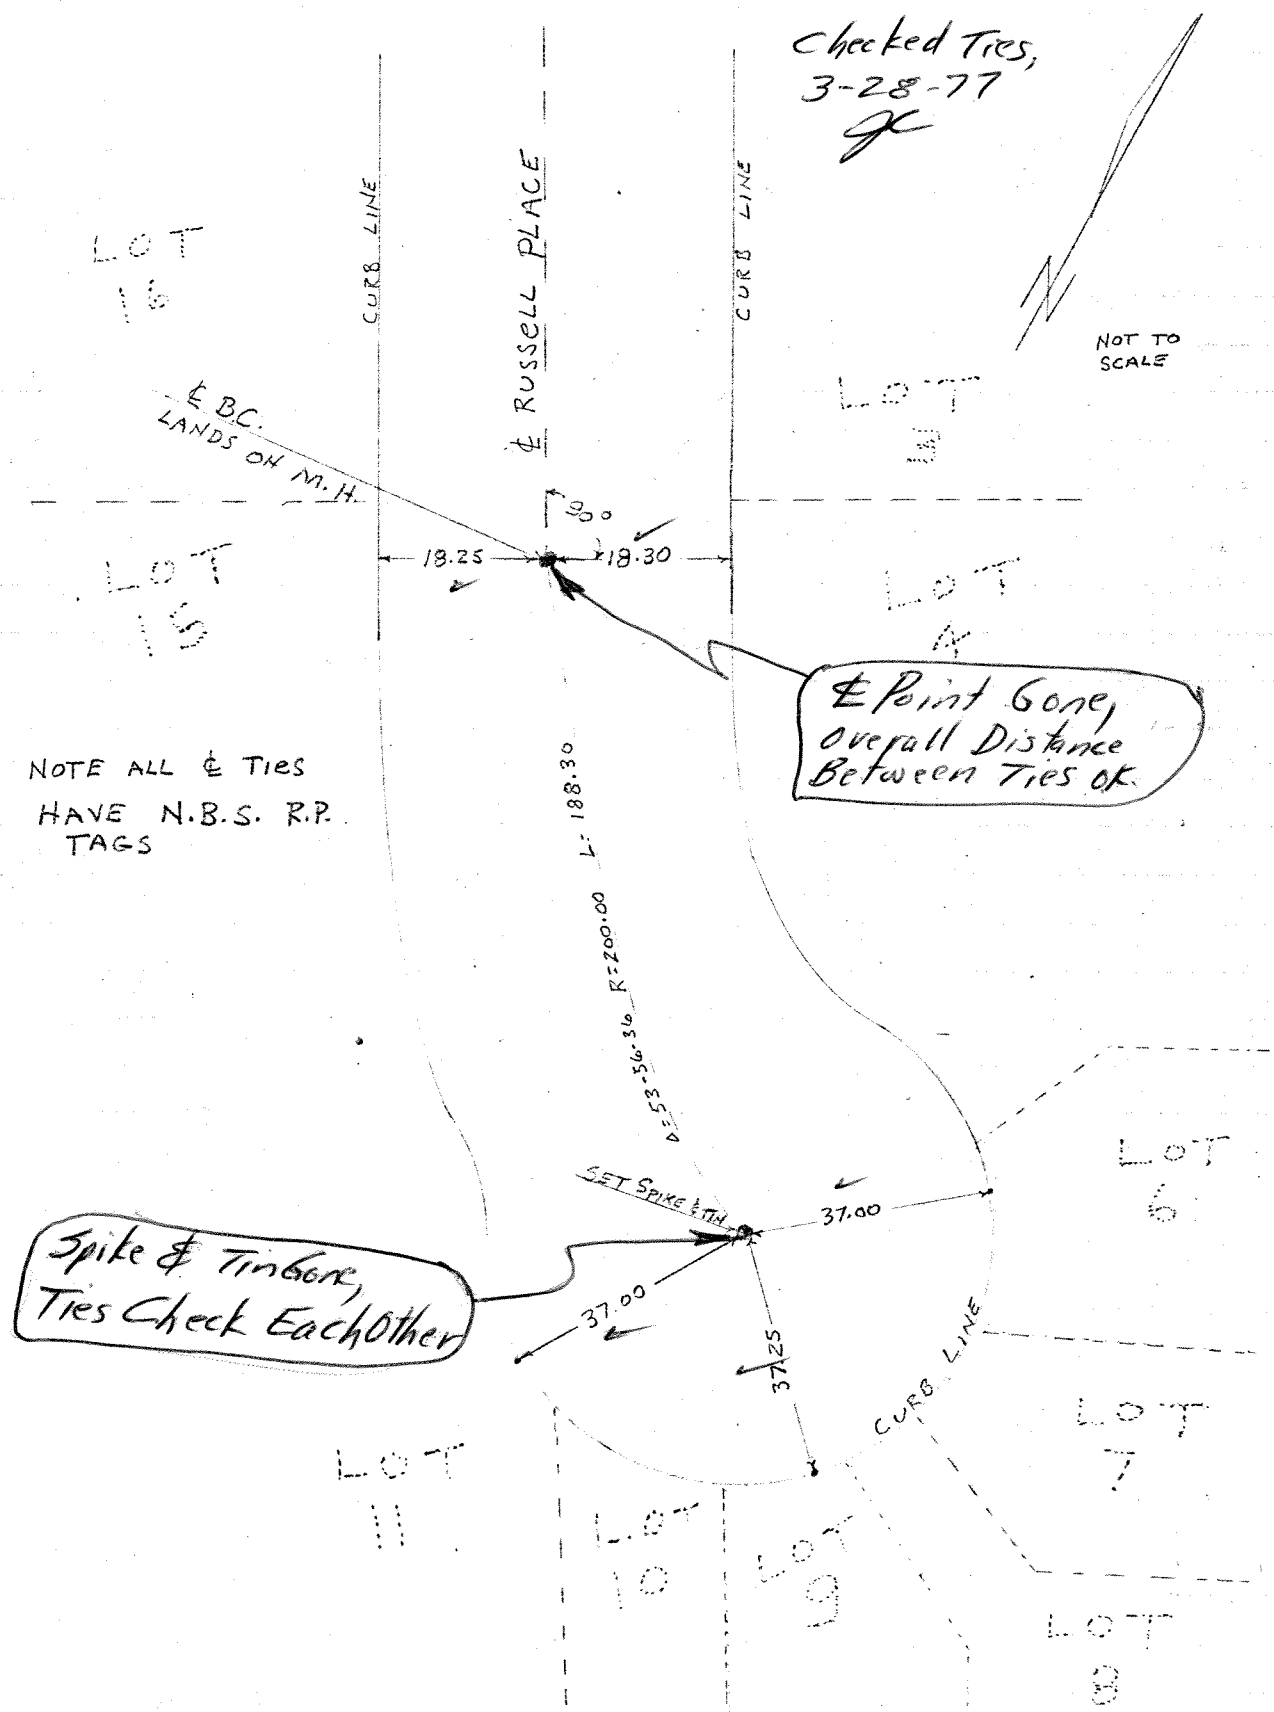 Checked Ties,
3-28-77
JC
CURB LINE
℄ RUSSELL PLACE
CURB LINE
N
NOT TO
SCALE
LOT
16
LOT
3
℄ B.C.
LANDS ON M.H.
90°
18.25
18.30
LOT
15
LOT
4
℄ Point Gone,
Overall Distance
Between Ties OK.
NOTE ALL ℄ TIES
HAVE N.B.S. R.P.
TAGS
Δ=53-56-36 R=200.00 L=188.30
LOT
6
SET SPIKE & TIN
37.00
Spike & Tin Gone,
Ties Check Each Other
37.00
37.25
CURB LINE
LOT
7
LOT
11
LOT
10
LOT
9
LOT
8